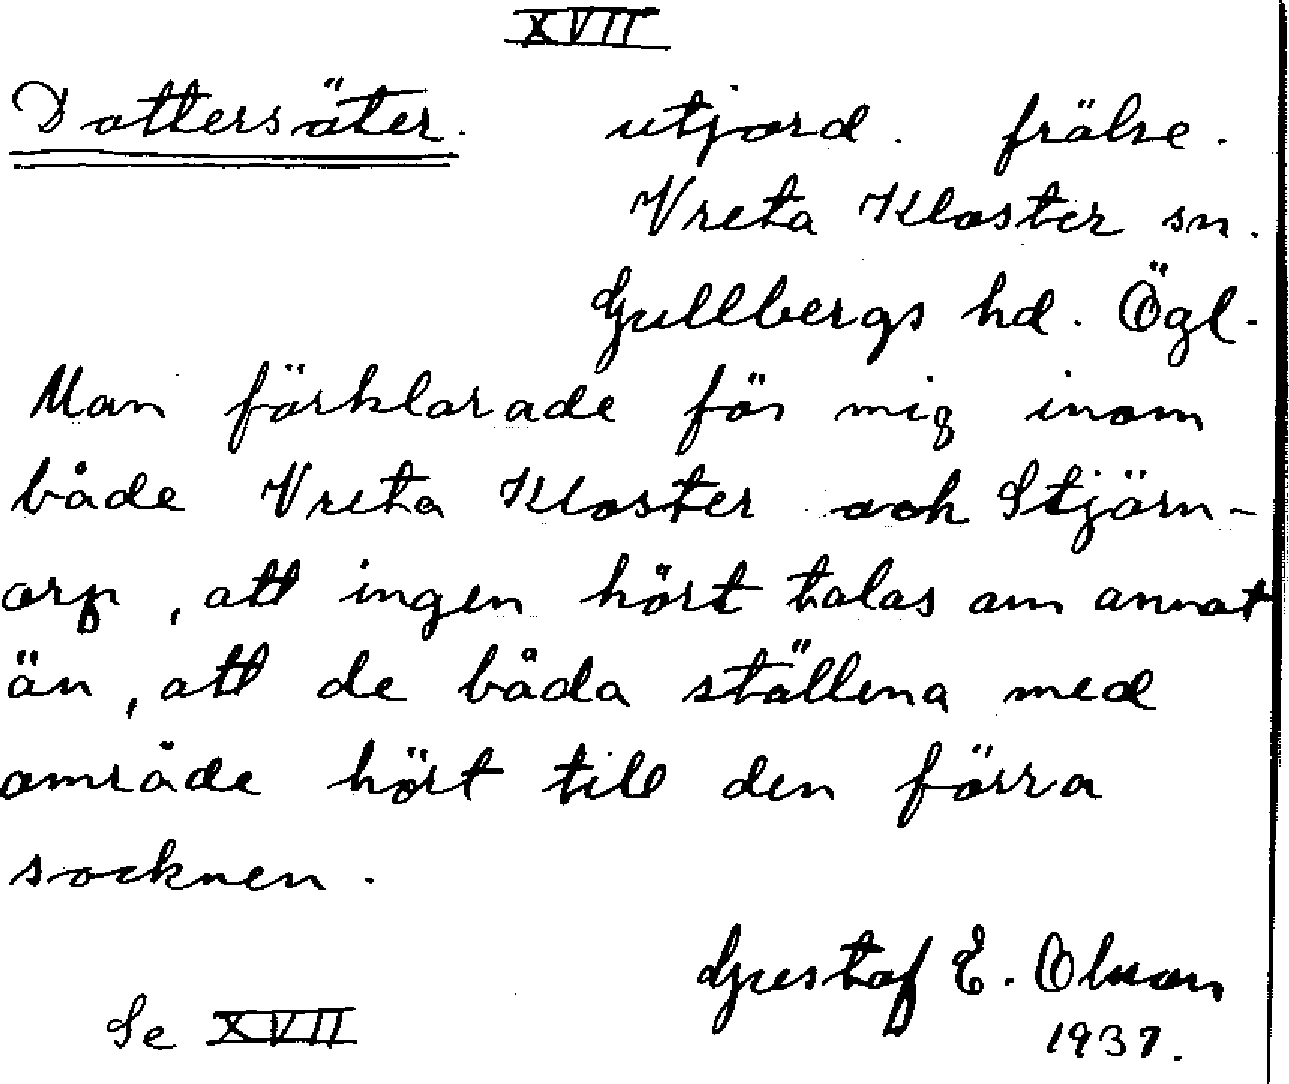 XVII
Dottersäter. utjord. frälse.
Vreta Kloster sn.
Gullbergs hd. Ögl.
Man förklarade för mig inom
både Vreta Kloster och Stjärn-
orp, att ingen hört talas om annat
än, att de båda ställena med
område hört till den förra
socknen.
Gustaf E. Olsson
Se XVII 1937.